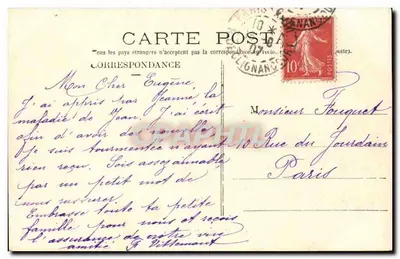 CARTE POSTALE
Tous les pays étrangers n'acceptent pas la correspondance
CORRESPONDANCE
Mon Cher Eugène
J'ai appris par Jeanne la
maladie de Jean. J'ai écrit
afin d'avoir des nouvelles
je suis tourmentée n'ayant
rien reçu. Sois assez aimable
par un petit mot de
nous rassurer.
Embrasse toute ta petite
famille pour nous et reçois
l'assurance de notre vive
amitié G. Villemant
PARIS
CLIGNANCOURT
10
POSTES
10
Monsieur Fouquet
10 Rue du Jourdain
Paris